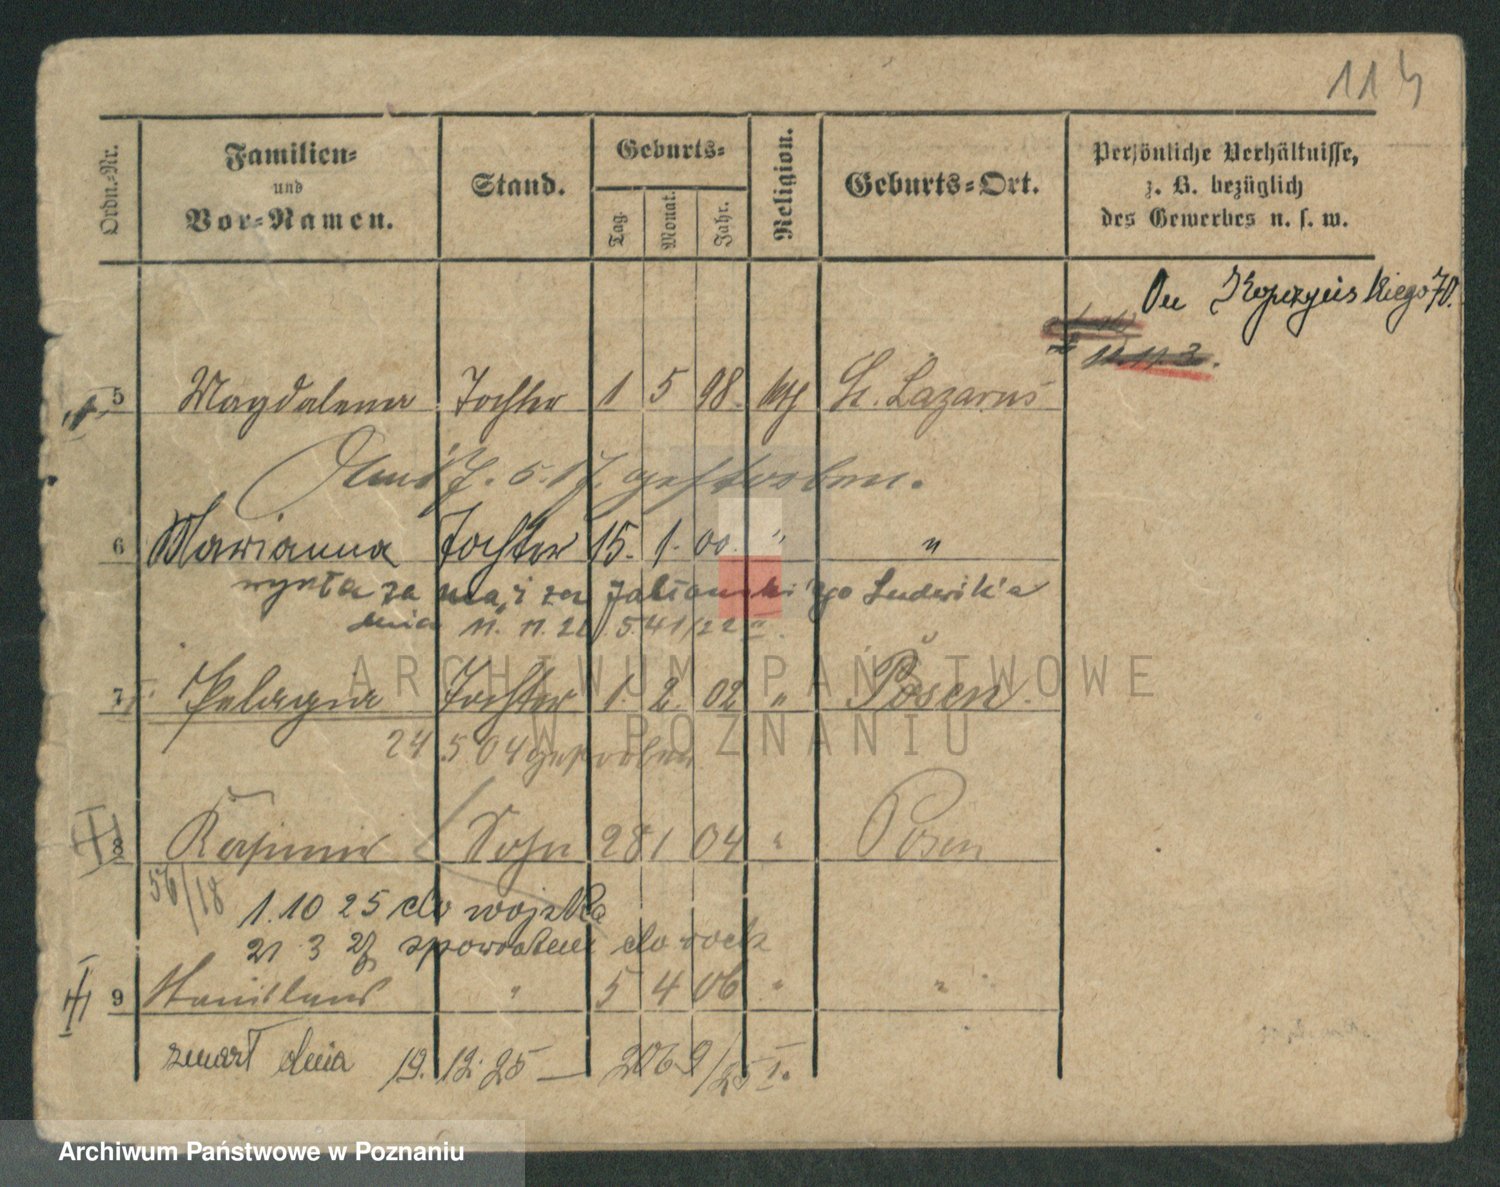 114
Ordn.-Nr.
Familien-
und
Vor-Namen.
Stand.
Geburts-
Tag.
Monat.
Jahr.
Religion.
Geburts-Ort.
Persönliche Verhältnisse,
z. B. bezüglich
des Gewerbes u. s. w.
70.
5 Magdalena Tochter 1 5 98. kth St. Lazarus
5. 17. gestorben.
6 Marianna Tochter 15. 1. 00. " "
wyszła za mąż za Jabłońskiego Ludwik'a
dnia 11. 11. 22 541/22 II.
7 Pelagia Tochter 1. 2. 02 " Posen.
ARCHIWUM PAŃSTWOWE
W POZNANIU
24 5 04 gestorben
8 Kasimir Sohn 28 1 04 " Posen
56/18
1. 10 25 do wojska
21 3 27 spowrotem do
9 Stanislaus " 5 4 06 " "
zmarł dnia 19. 12. 25 — 2069/25 I.
Archiwum Państwowe w Poznaniu